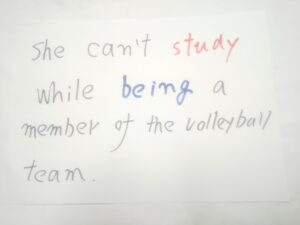 She can't study
while being a
member of the volleyball
team.